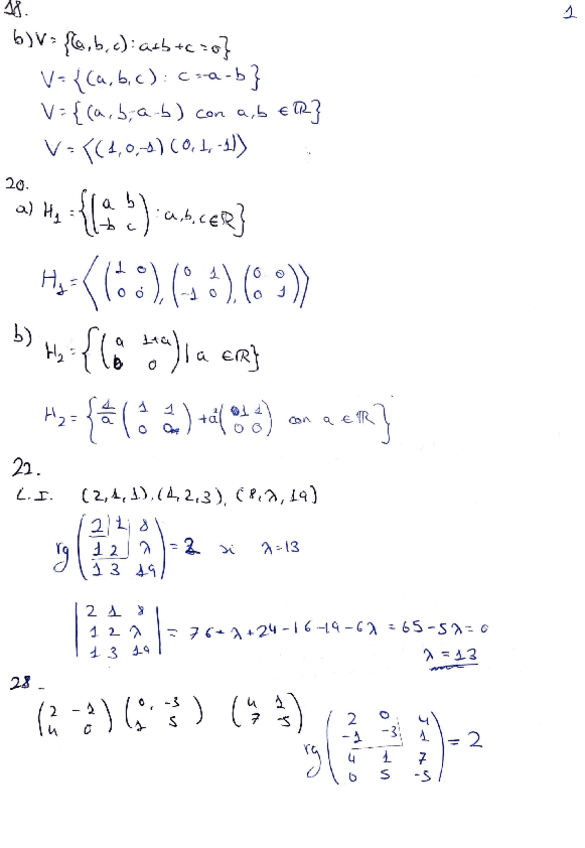 18.
1
b) V = {(a, b, c) : a+b+c = 0}
V = {(a, b, c) : c = -a-b}
V = {(a, b, -a-b) con a, b ∈ ℝ}
V = ⟨(1, 0, -1) (0, 1, -1)⟩
20.
a) H₁ = {(a b; -b c) : a, b, c ∈ ℝ}
H₁ = ⟨(1 0; 0 0), (0 1; -1 0), (0 0; 0 1)⟩
b) H₂ = {(a 1+a; 0 0) | a ∈ ℝ}
con a ∈ ℝ}
22.
L.I. (2, 1, 1), (1, 2, 3), (8, λ, 19)
rg (2 1 8; 1 2 λ; 1 3 19) = 2 si λ=13
|2 1 8; 1 2 λ; 1 3 19| = 76 + λ + 24 - 16 - 19 - 6λ = 65 - 5λ = 0
λ = 13
28-
(2 -1; 4 0) (0, -3; 1 5) (4 1; 7 -5)
rg (2 0 4; -1 -3 1; 4 1 7; 0 5 -5) = 2